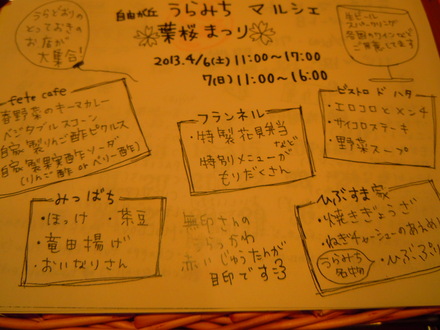 自由が丘 うらみち マルシェ
葉桜まつり
2013.4/6(土) 11:00〜17:00
7(日) 11:00〜16:00
うらどおりの
とっておきの
お店が
大集合!
生ビール
スパークリング
各国のワインなどで
ご用意してます
fete cafe
春野菜のキーマカレー
ベジタブルスコーン
自家製りんご酢ピクルス
自家製果実酢ソーダ
(りんご酢 or ベリー酢)
フランネル
・特製花見弁当
など
特別メニューが
もりだくさん
ビストロ ド ハタ
・エロコロとメンチ
・サイコロステーキ
・野菜スープ
みつばち
・ほっけ ・茶豆
・竜田揚げ
・おいなりさん
無印さんの
うらっかわ
赤いじゅうたんが
目印です
ひぶすま家
・焼きぎょうざ
・ねぎチャーシューのあえ
うらみち
名物
・ひぶ